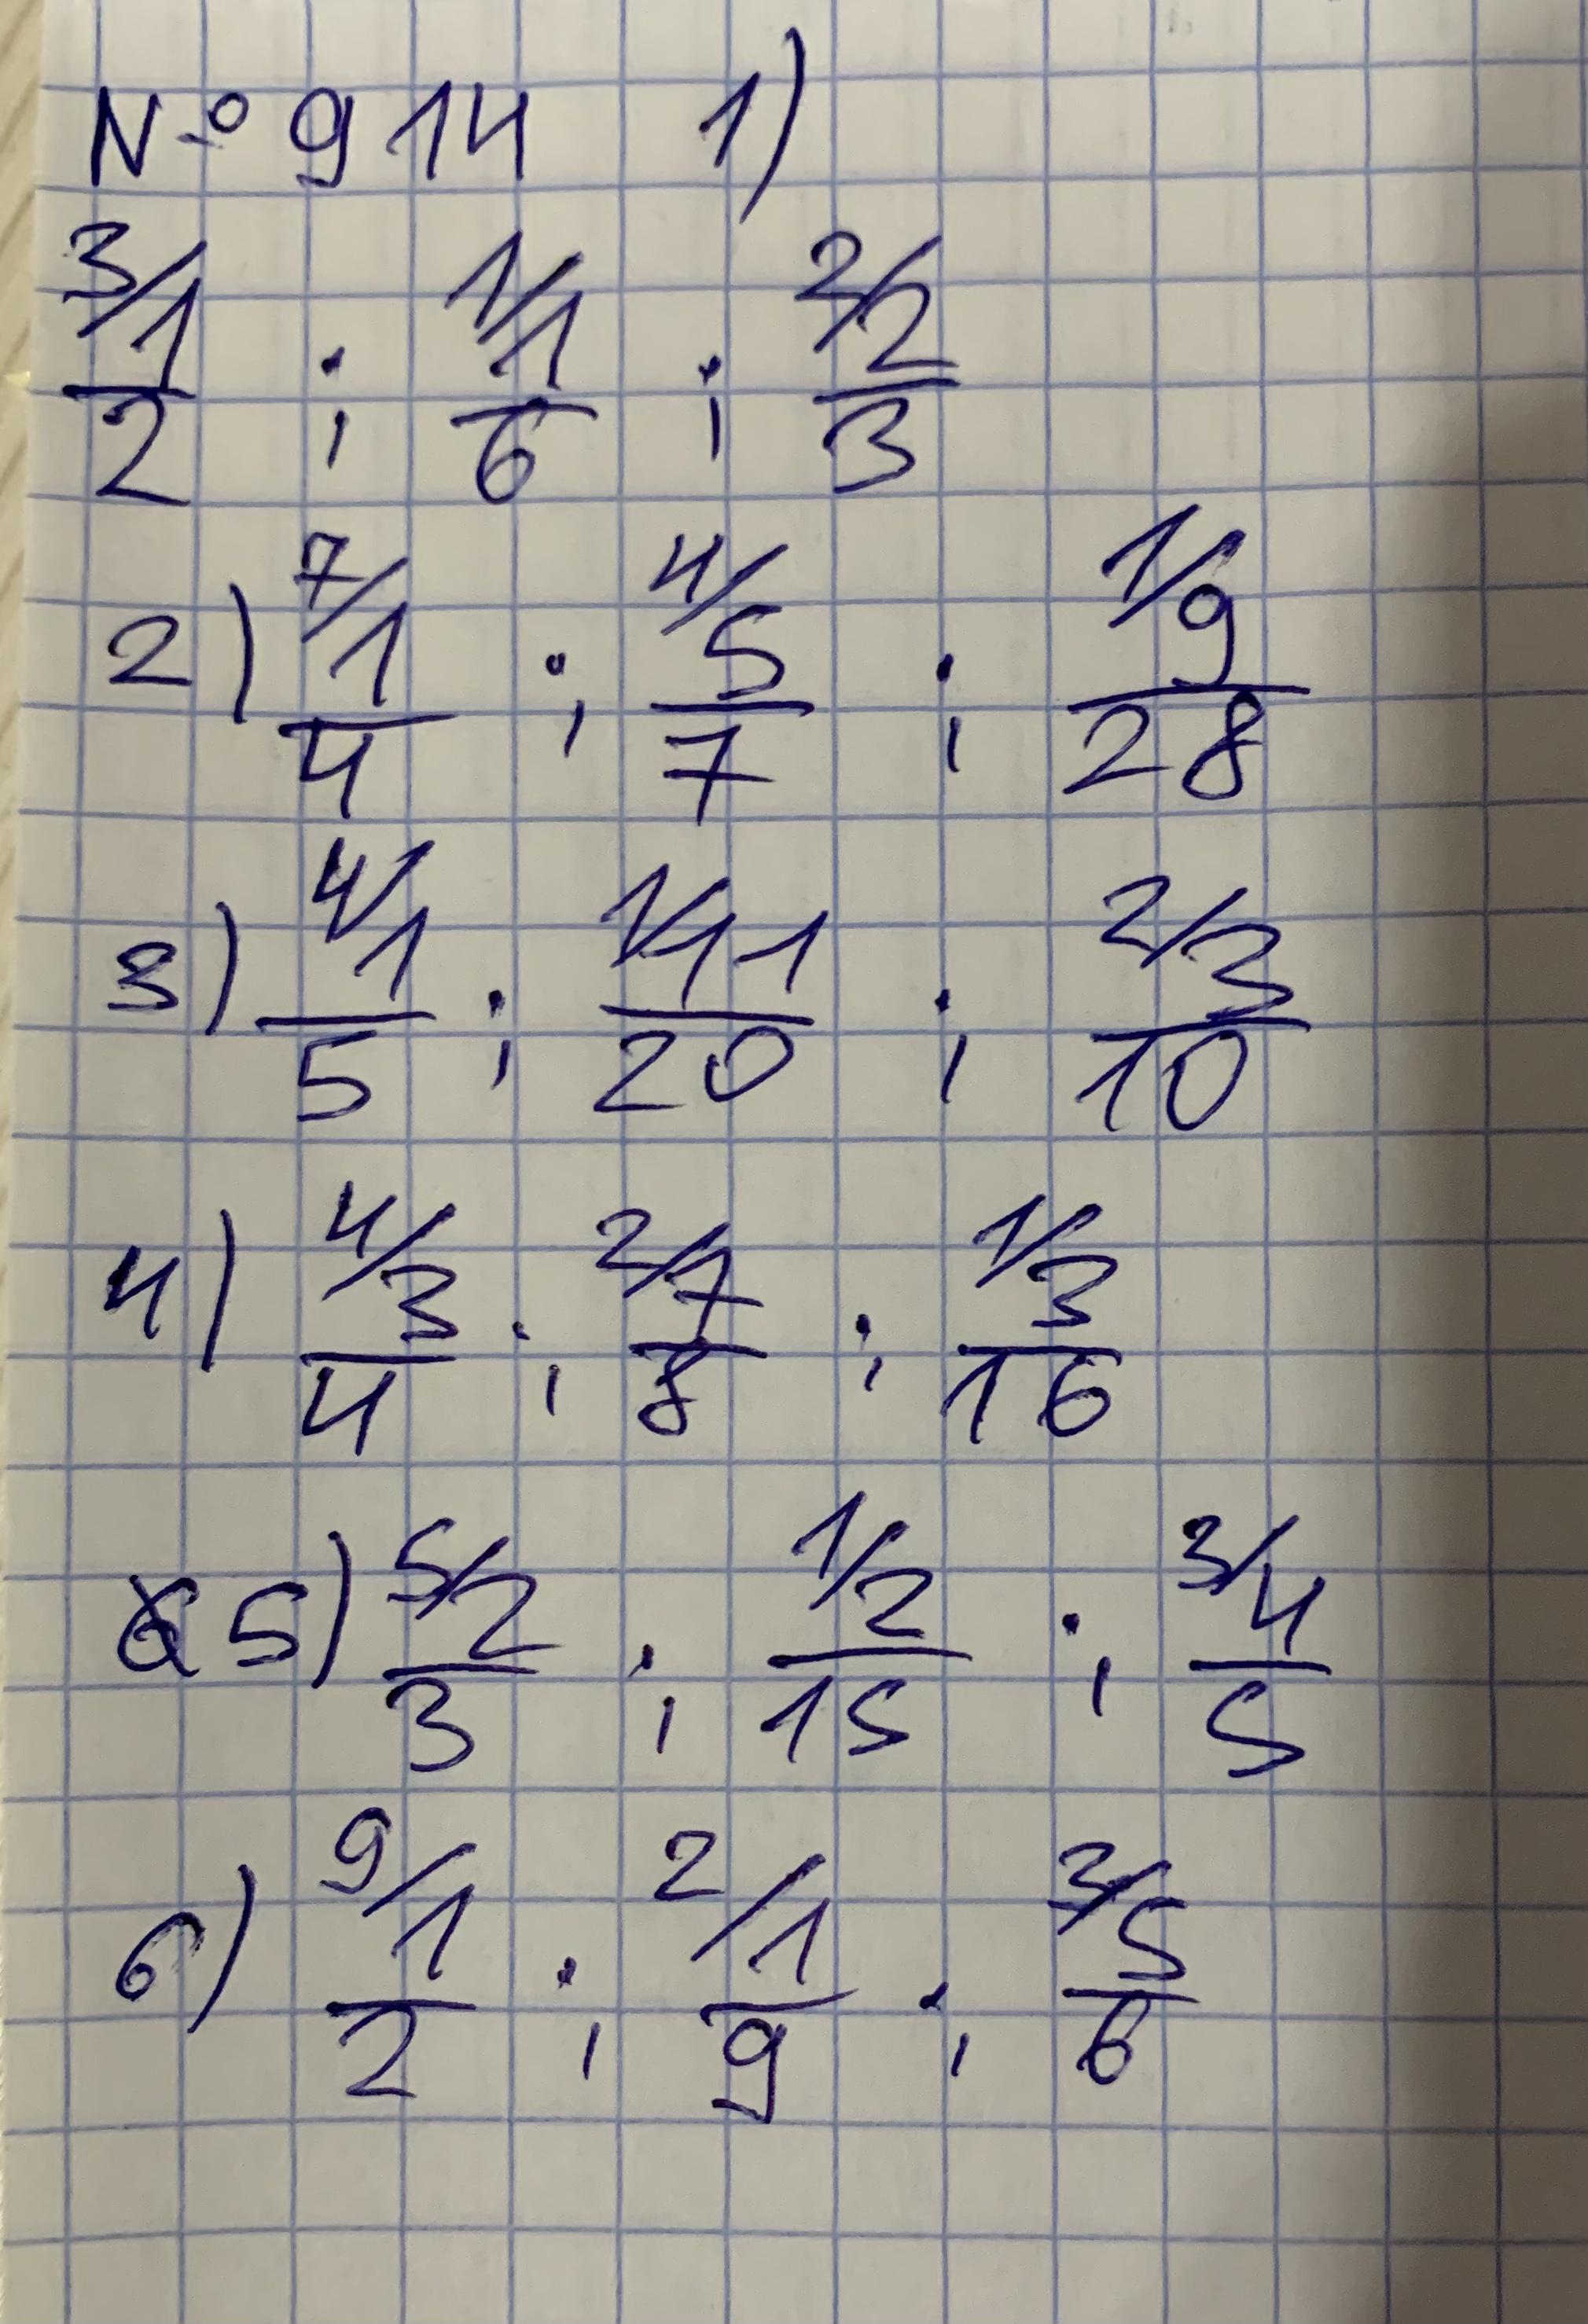 № 914 1)
3/1/2 ; 1/1/6 ; 2/2/3
2) 7/1/4 ; 4/5/7 ; 1/9/28
3) 4/1/5 ; 1/11/20 ; 2/3/10
4) 4/3/4 ; 2/7/8 ; 1/3/16
5) 5/2/3 ; 1/2/15 ; 3/4/5
6) 9/1/2 ; 2/1/9 ; 3/5/6